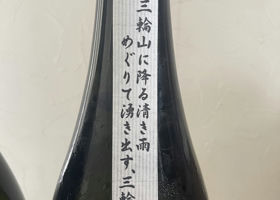 三輪山に降る清き雨
めぐりて湧き出す、三輪